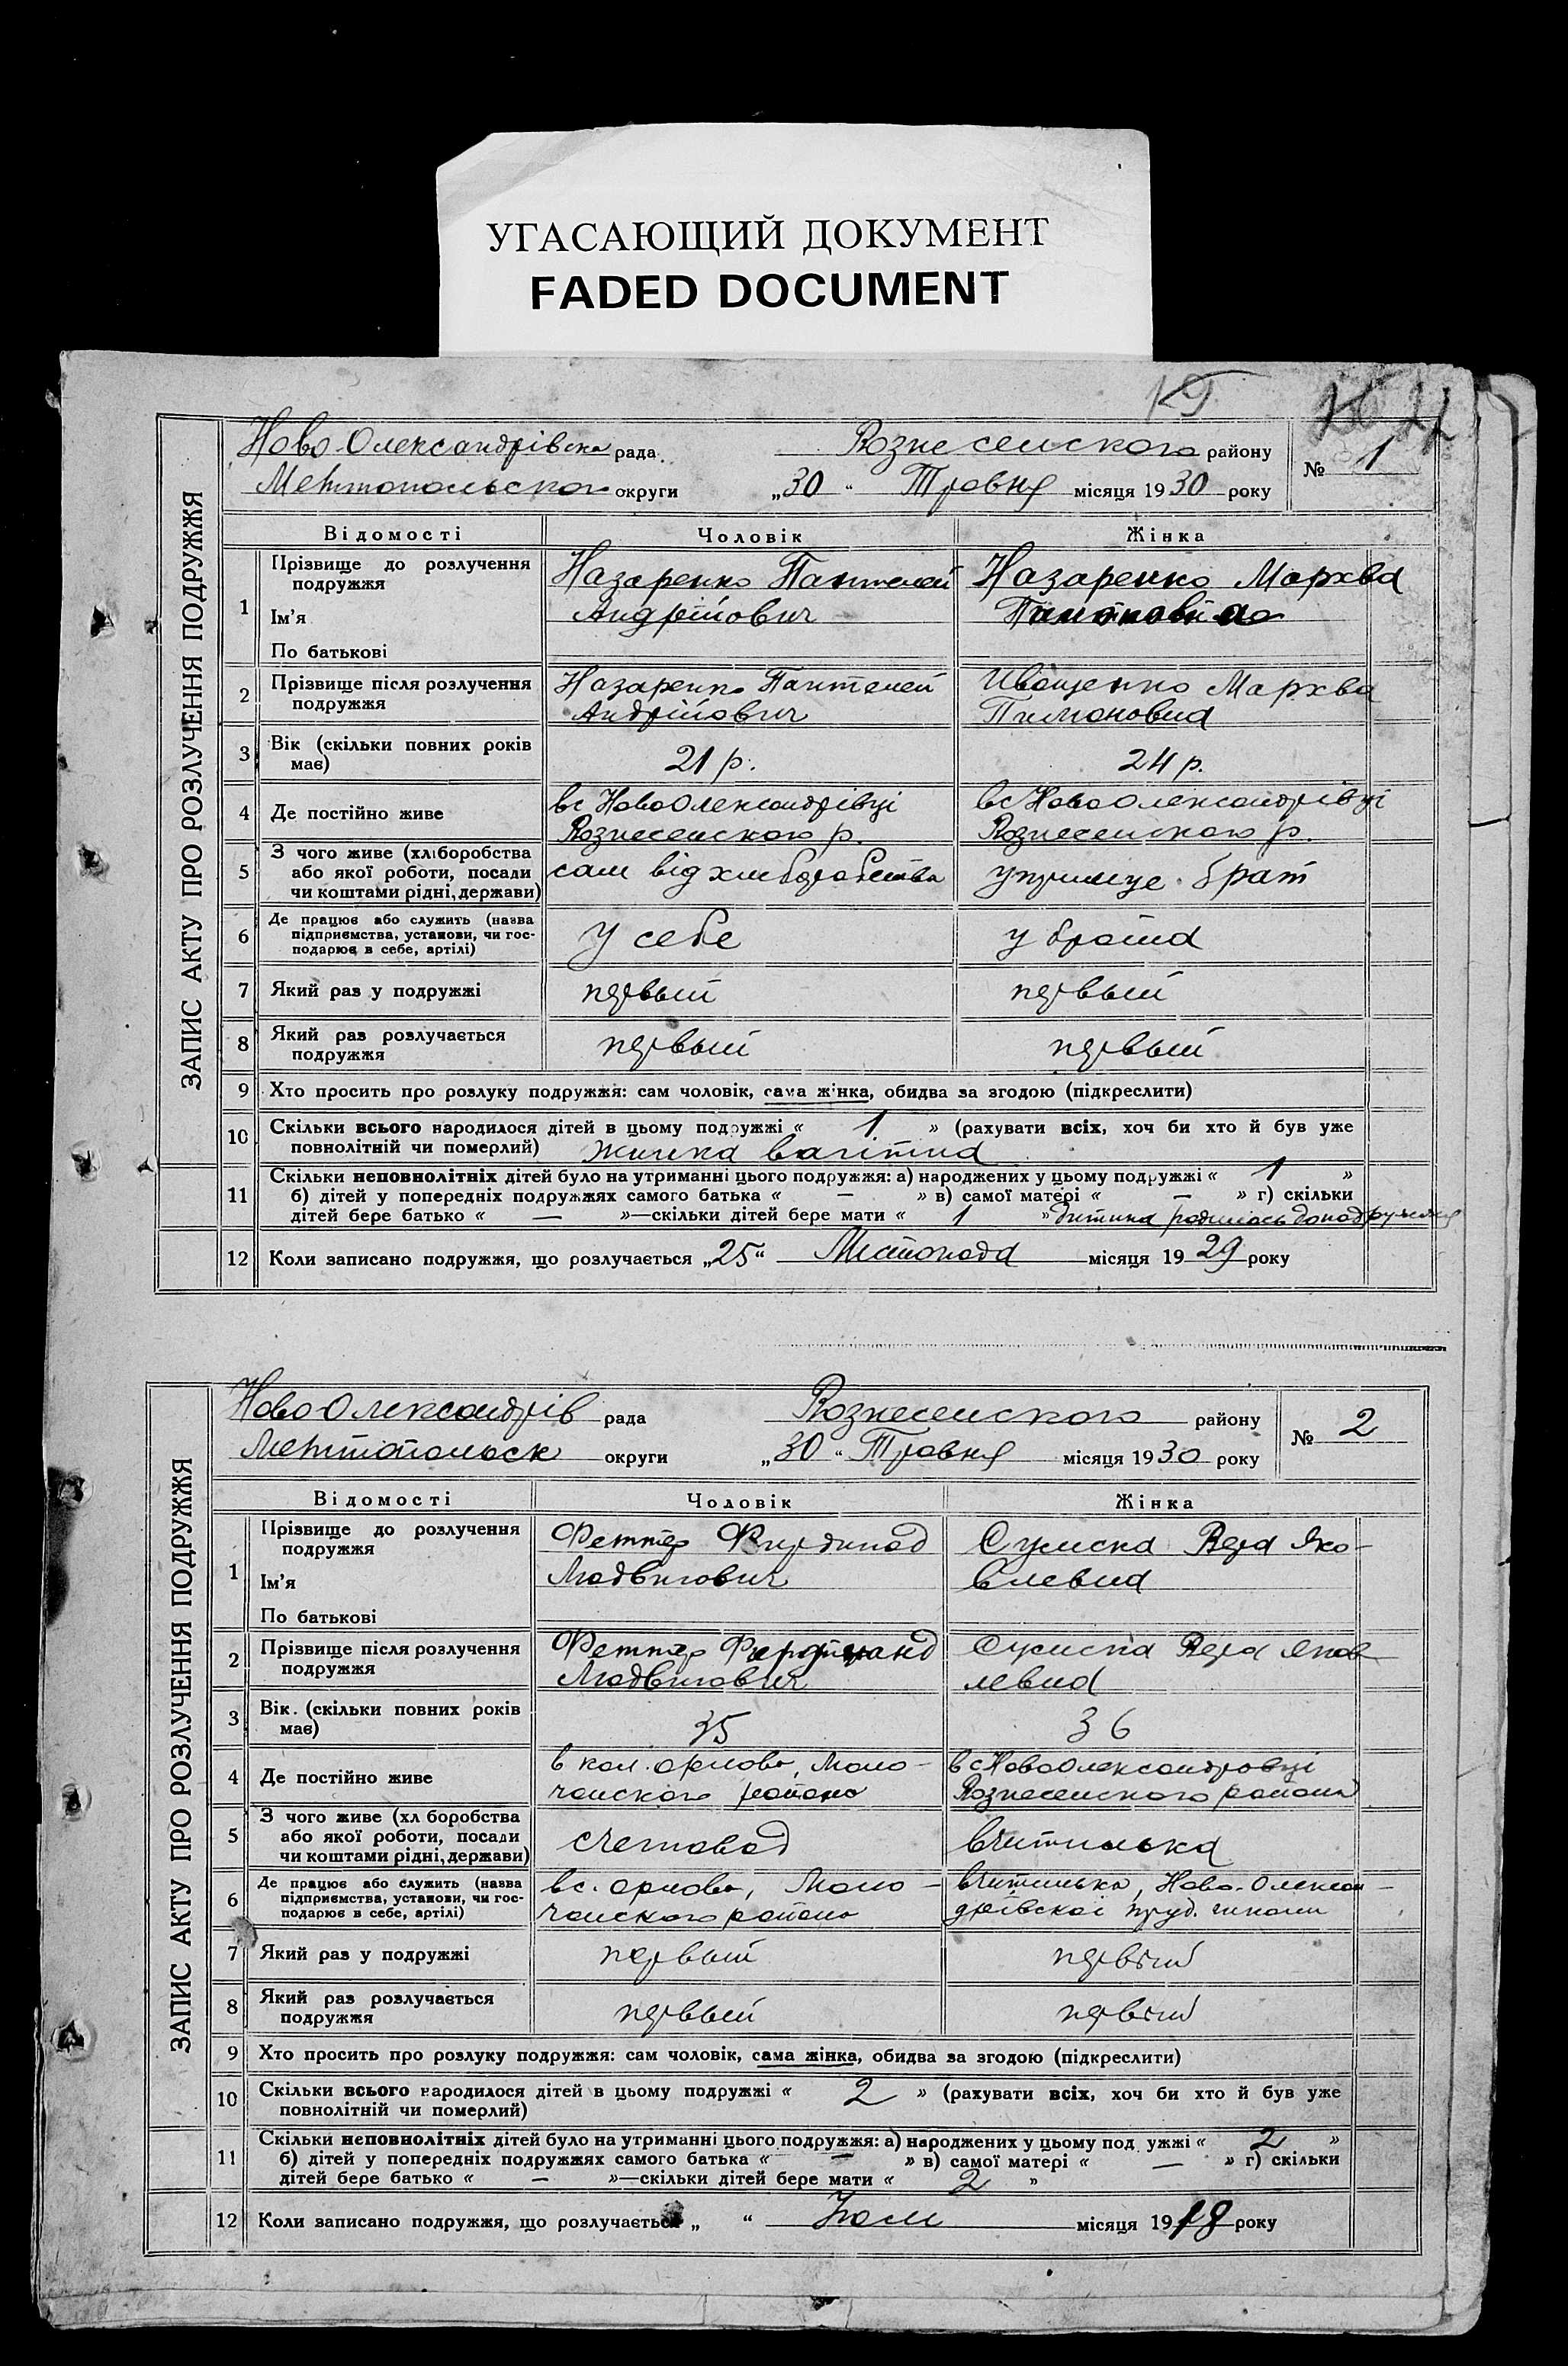 УГАСАЮЩИЙ ДОКУМЕНТ
FADED DOCUMENT
ЗАПИС АКТУ ПРО РОЗЛУЧЕННЯ ПОДРУЖЖЯ
Ново Олександрівска рада Вознесенского району № 1
Мелітопольског округи „30“ Травня місяця 1930 року
Відомості Чоловік Жінка
1 Прізвище до розлучення подружжя Назаренко Пантелей Назаренко Мархва
Ім'я Андрійович
По батькові
2 Прізвище після розлучення Назаренко Пантелей Иващенко Мархва
подружжя Андрійович Пимоновна
3 Вік (скільки повних років має) 21 р. 24 р.
4 Де постійно живе вс НовоОлександрівці вс НовоОлександрівці
Вознесенского р. Вознесенского р.
5 З чого живе (хліборобства
або якої роботи, посади сам від хлиборобства утримуе брат
чи коштами рідні, держави)
6 Де працює або служить (назва
підприємства, установи, чи гос- У себе у брата
подарює в себе, артілі)
7 Який раз у подружжі первый первый
8 Який раз розлучається
подружжя первый первый
9 Хто просить про розлуку подружжя: сам чоловік, сама жінка, обидва за згодою (підкреслити)
10 Скільки всього народилося дітей в цьому подружжі « 1 » (рахувати всіх, хоч би хто й був уже
повнолітній чи померлий) жинка вагітна
11 Скільки неповнолітніх дітей було на утриманні цього подружжя: а) народжених у цьому подружжі « 1 »
б) дітей у попередніх подружжях самого батька « — » в) самої матері « — » г) скільки
дітей бере батько « — »—скільки дітей бере мати « 1 » дитина родилась до подружжя
12 Коли записано подружжя, що розлучається „25“ Листопада місяця 1929 року
ЗАПИС АКТУ ПРО РОЗЛУЧЕННЯ ПОДРУЖЖЯ
Ново Олександрів рада Вознесенского району № 2
Мелітопольск округи „30“ Травня місяця 1930 року
Відомості Чоловік Жінка
1 Прізвище до розлучення Феттер Фирдинад Сумска Вера Яко-
подружжя
Ім'я Людвигович влевна
По батькові
2 Прізвище після розлучення Феттер Фердинанд Сумска Вера Яков
подружжя Людвигович левна
3 Вік (скільки повних років має) 35 36
4 Де постійно живе в кол. орлова, Моло- в с НовоОлександровці
чанского района Вознесенского района
5 З чого живе (хліборобства
або якої роботи, посади счетовод вчителька
чи коштами рідні, держави)
6 Де працює або служить (назва вс. орлова, Моло- вчителька, Ново-Олексан-
підприємства, установи, чи гос- чанского района дрівскаі труд. школи
подарює в себе, артілі)
7 Який раз у подружжі первый первый
8 Який раз розлучається
подружжя первый первый
9 Хто просить про розлуку подружжя: сам чоловік, сама жінка, обидва за згодою (підкреслити)
10 Скільки всього народилося дітей в цьому подружжі « 2 » (рахувати всіх, хоч би хто й був уже
повнолітній чи померлий)
11 Скільки неповнолітніх дітей було на утриманні цього подружжя: а) народжених у цьому под ужжі « 2 »
б) дітей у попередніх подружжях самого батька « — » в) самої матері « — » г) скільки
дітей бере батько « — »—скільки дітей бере мати « 2 »
12 Коли записано подружжя, що розлучається „ “ місяця 1918 року